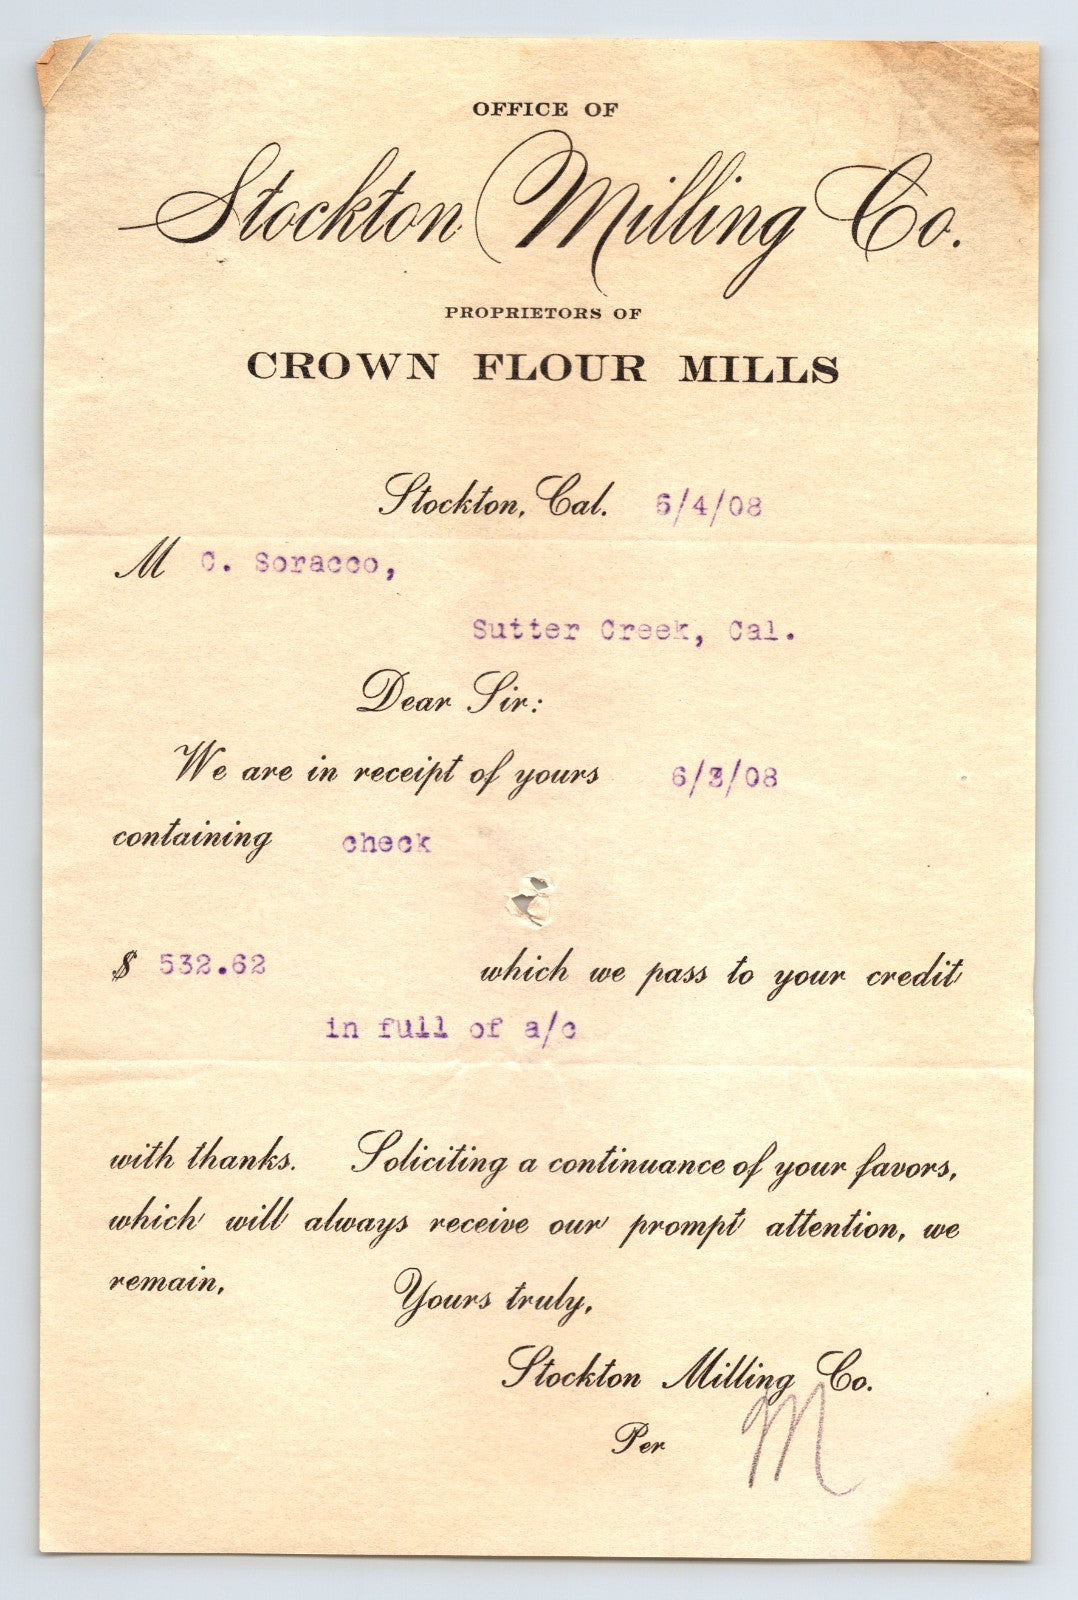 OFFICE OF
Stockton Milling Co.
PROPRIETORS OF
CROWN FLOUR MILLS
Stockton, Cal. 6/4/08
M C. Soracco,
Sutter Creek, Cal.
Dear Sir:
We are in receipt of yours 6/3/08
containing check
$ 532.62 which we pass to your credit
in full of a/c
with thanks. Soliciting a continuance of your favors,
which will always receive our prompt attention, we
remain, Yours truly,
Stockton Milling Co.
Per M